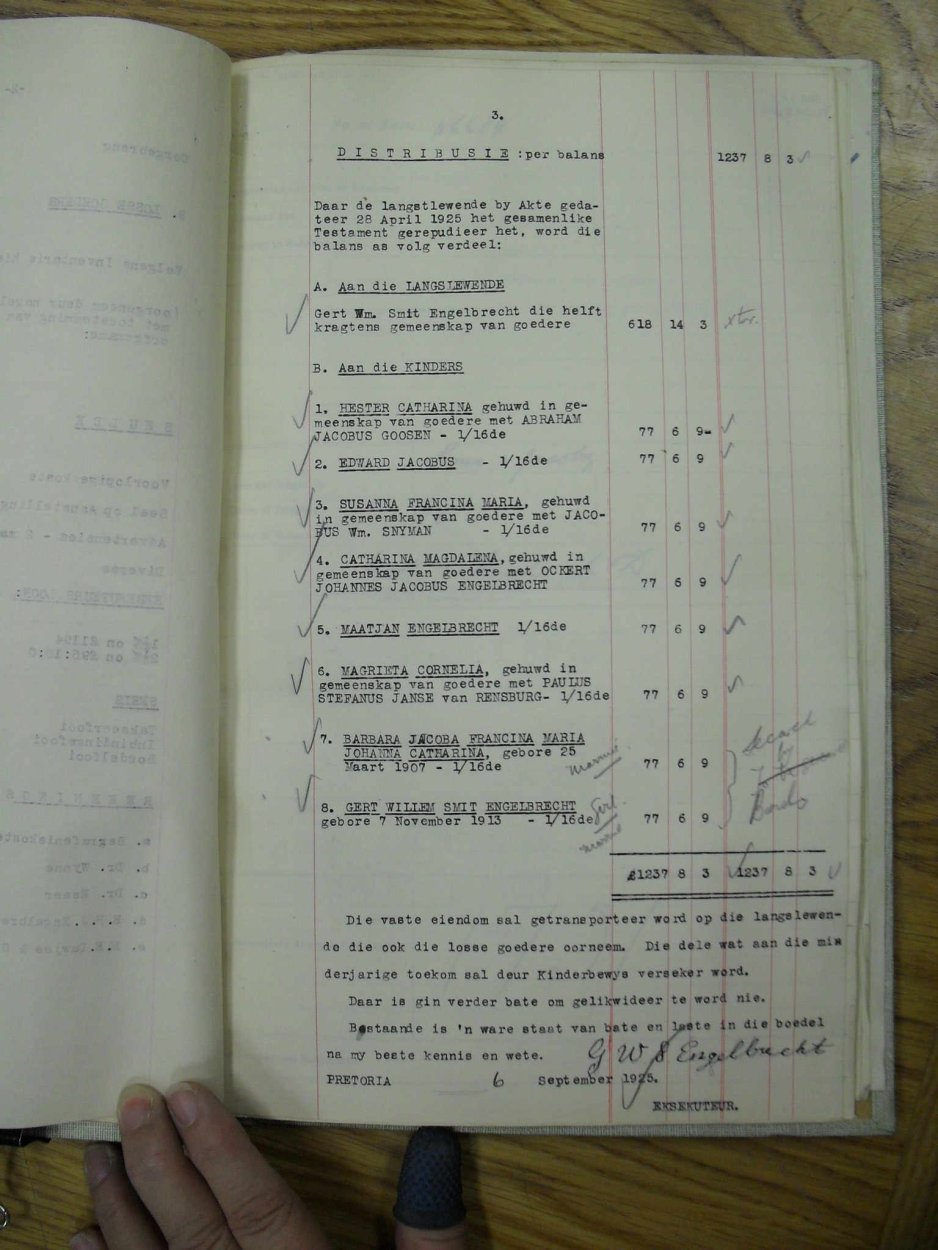 3.
DISTRIBUSIE: per balans 1237 8 3
Daar de langstlewende by Akte geda-
teer 28 April 1925 het gesamenlike
Testament gerepudieer het, word die
balans as volg verdeel:
A. Aan die LANGSLEWENDE
Gert Wm. Smit Engelbrecht die helft
kragtens gemeenskap van goedere 618 14 3
B. Aan die KINDERS
1. HESTER CATHARINA gehuwd in ge-
meenskap van goedere met ABRAHAM
JACOBUS GOOSEN - 1/16de 77 6 9-
2. EDWARD JACOBUS - 1/16de 77 6 9
3. SUSANNA FRANCINA MARIA, gehuwd
in gemeenskap van goedere met JACO-
BUS Wm. SNYMAN - 1/16de 77 6 9
4. CATHARINA MAGDALENA, gehuwd in
gemeenskap van goedere met OCKERT
JOHANNES JACOBUS ENGELBRECHT 77 6 9
5. MAATJAN ENGELBRECHT 1/16de 77 6 9
6. MAGRIETA CORNELIA, gehuwd in
gemeenskap van goedere met PAULUS
STEFANUS JANSE van RENSBURG- 1/16de 77 6 9
7. BARBARA JACOBA FRANCINA MARIA
JOHANNA CATHARINA, gebore 25
Maart 1907 - 1/16de 77 6 9
8. GERT WILLEM SMIT ENGELBRECHT
gebore 7 November 1913 - 1/16de 77 6 9
£1237 8 3 1237 8 3
Die vaste eiendom sal getransporteer word op die langslewen-
de die ook die losse goedere oorneem. Die dele wat aan die min
derjarige toekom sal deur Kinderbewys verseker word.
Daar is gin verder bate om gelikwideer te word nie.
Bostaande is 'n ware staat van bate en laste in die boedel
na my beste kennis en wete. G W S Engelbrecht
PRETORIA 6 September 1925.
EKSEKUTEUR.